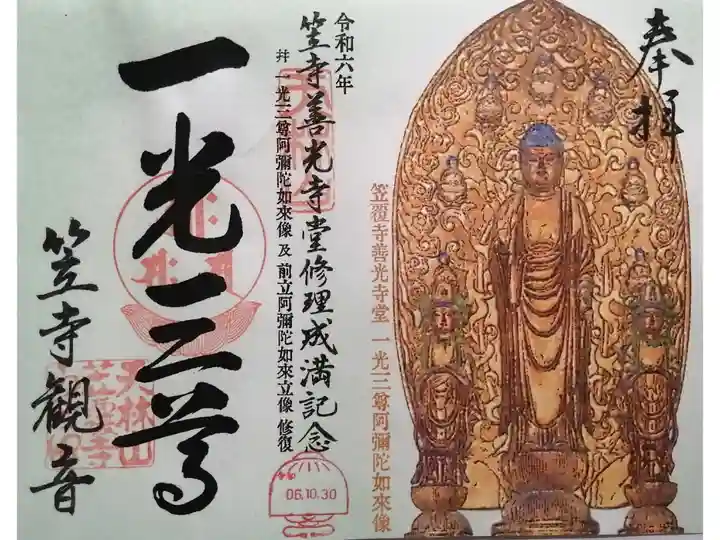 奉拝
笠覆寺善光寺堂 一光三尊阿彌陀如來像
令和六年
笠寺善光寺堂修理成満記念
并 一光三尊阿彌陀如來像 及 前立阿彌陀如來立像 修復
06.10.30
一光三尊
笠寺観音
天林山
笠覆寺